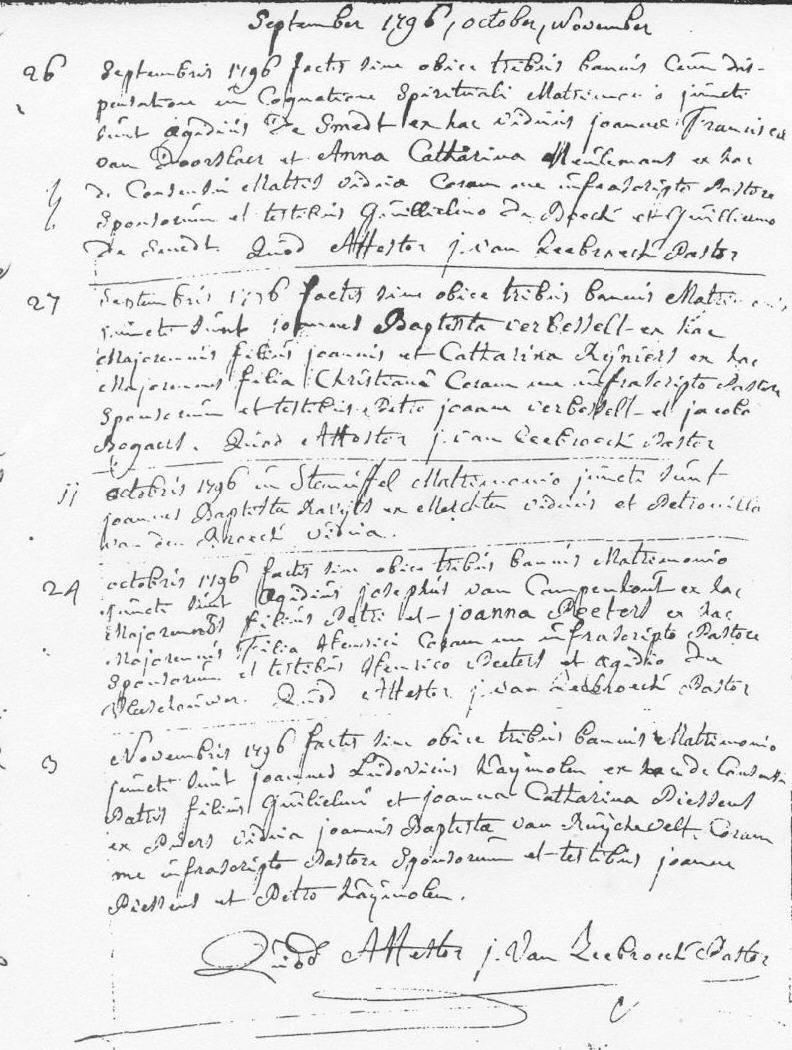 September 1796, october, November
26 Septembris 1796 factis sine obice tribus bannis Cum dis-
pensatione in Cognatione Spirituali Matrimonio juncti
sunt Ægidius De Smedt ex hac viduus joannae Francisca
van Doorslaer et Anna Catharina Meulemans ex hac
de Consensu Matris vidua Coram me infrascripto Pastore
Sponsorum et testibus Guillielmo De Boeck et Guilliemo
De Smedt. Quod Attestor j. van Leebroeck Pastor
27 Septembris 1796 factis sine obice tribus bannis
juncti sunt joannes Baptista verbesselt ex hac
Majorennis filius joannis et Catharina Reyniers ex hac
Majorennis filia Christiani Coram me infrascripto Pastore
Sponsorum et testibus Petro joanne verbesselt et jacobo
Bogaers. Quod Attestor j. van Leebroeck Pastor
11 octobris 1796 in Steenuffel Matrimonio juncti sunt
joannes Baptista ex Merchten viduus et Petronilla
van den Broeck vidua.
24 octobris 1796 factis sine obice tribus bannis Matrimonio
juncti sunt Ægidius josephus van Campenhout ex hac
Majorennis filius Petri et joanna Peeters ex hac
Majorennis Filia Henrici Coram me infrascripto Pastore
Sponsorum et testibus Henrico Peeters et Ægidio De
Vleeschauwer. Quod Attestor j. van Leebroeck Pastor
3 Novembris 1796 factis sine obice tribus bannis Matrimonio
juncti sunt joannes Ludovicus Haymolen ex hac de Consensu
Patris filius Guilielmi et joanna Catharina Piessens
ex Puers vidua joannis Baptistæ van Ruychevelt. Coram
me infrascripto Pastore Sponsorum et testibus joanne
Piessens et Petro Haymolen.
Quod Attestor j. Van Leebroeck Pastor